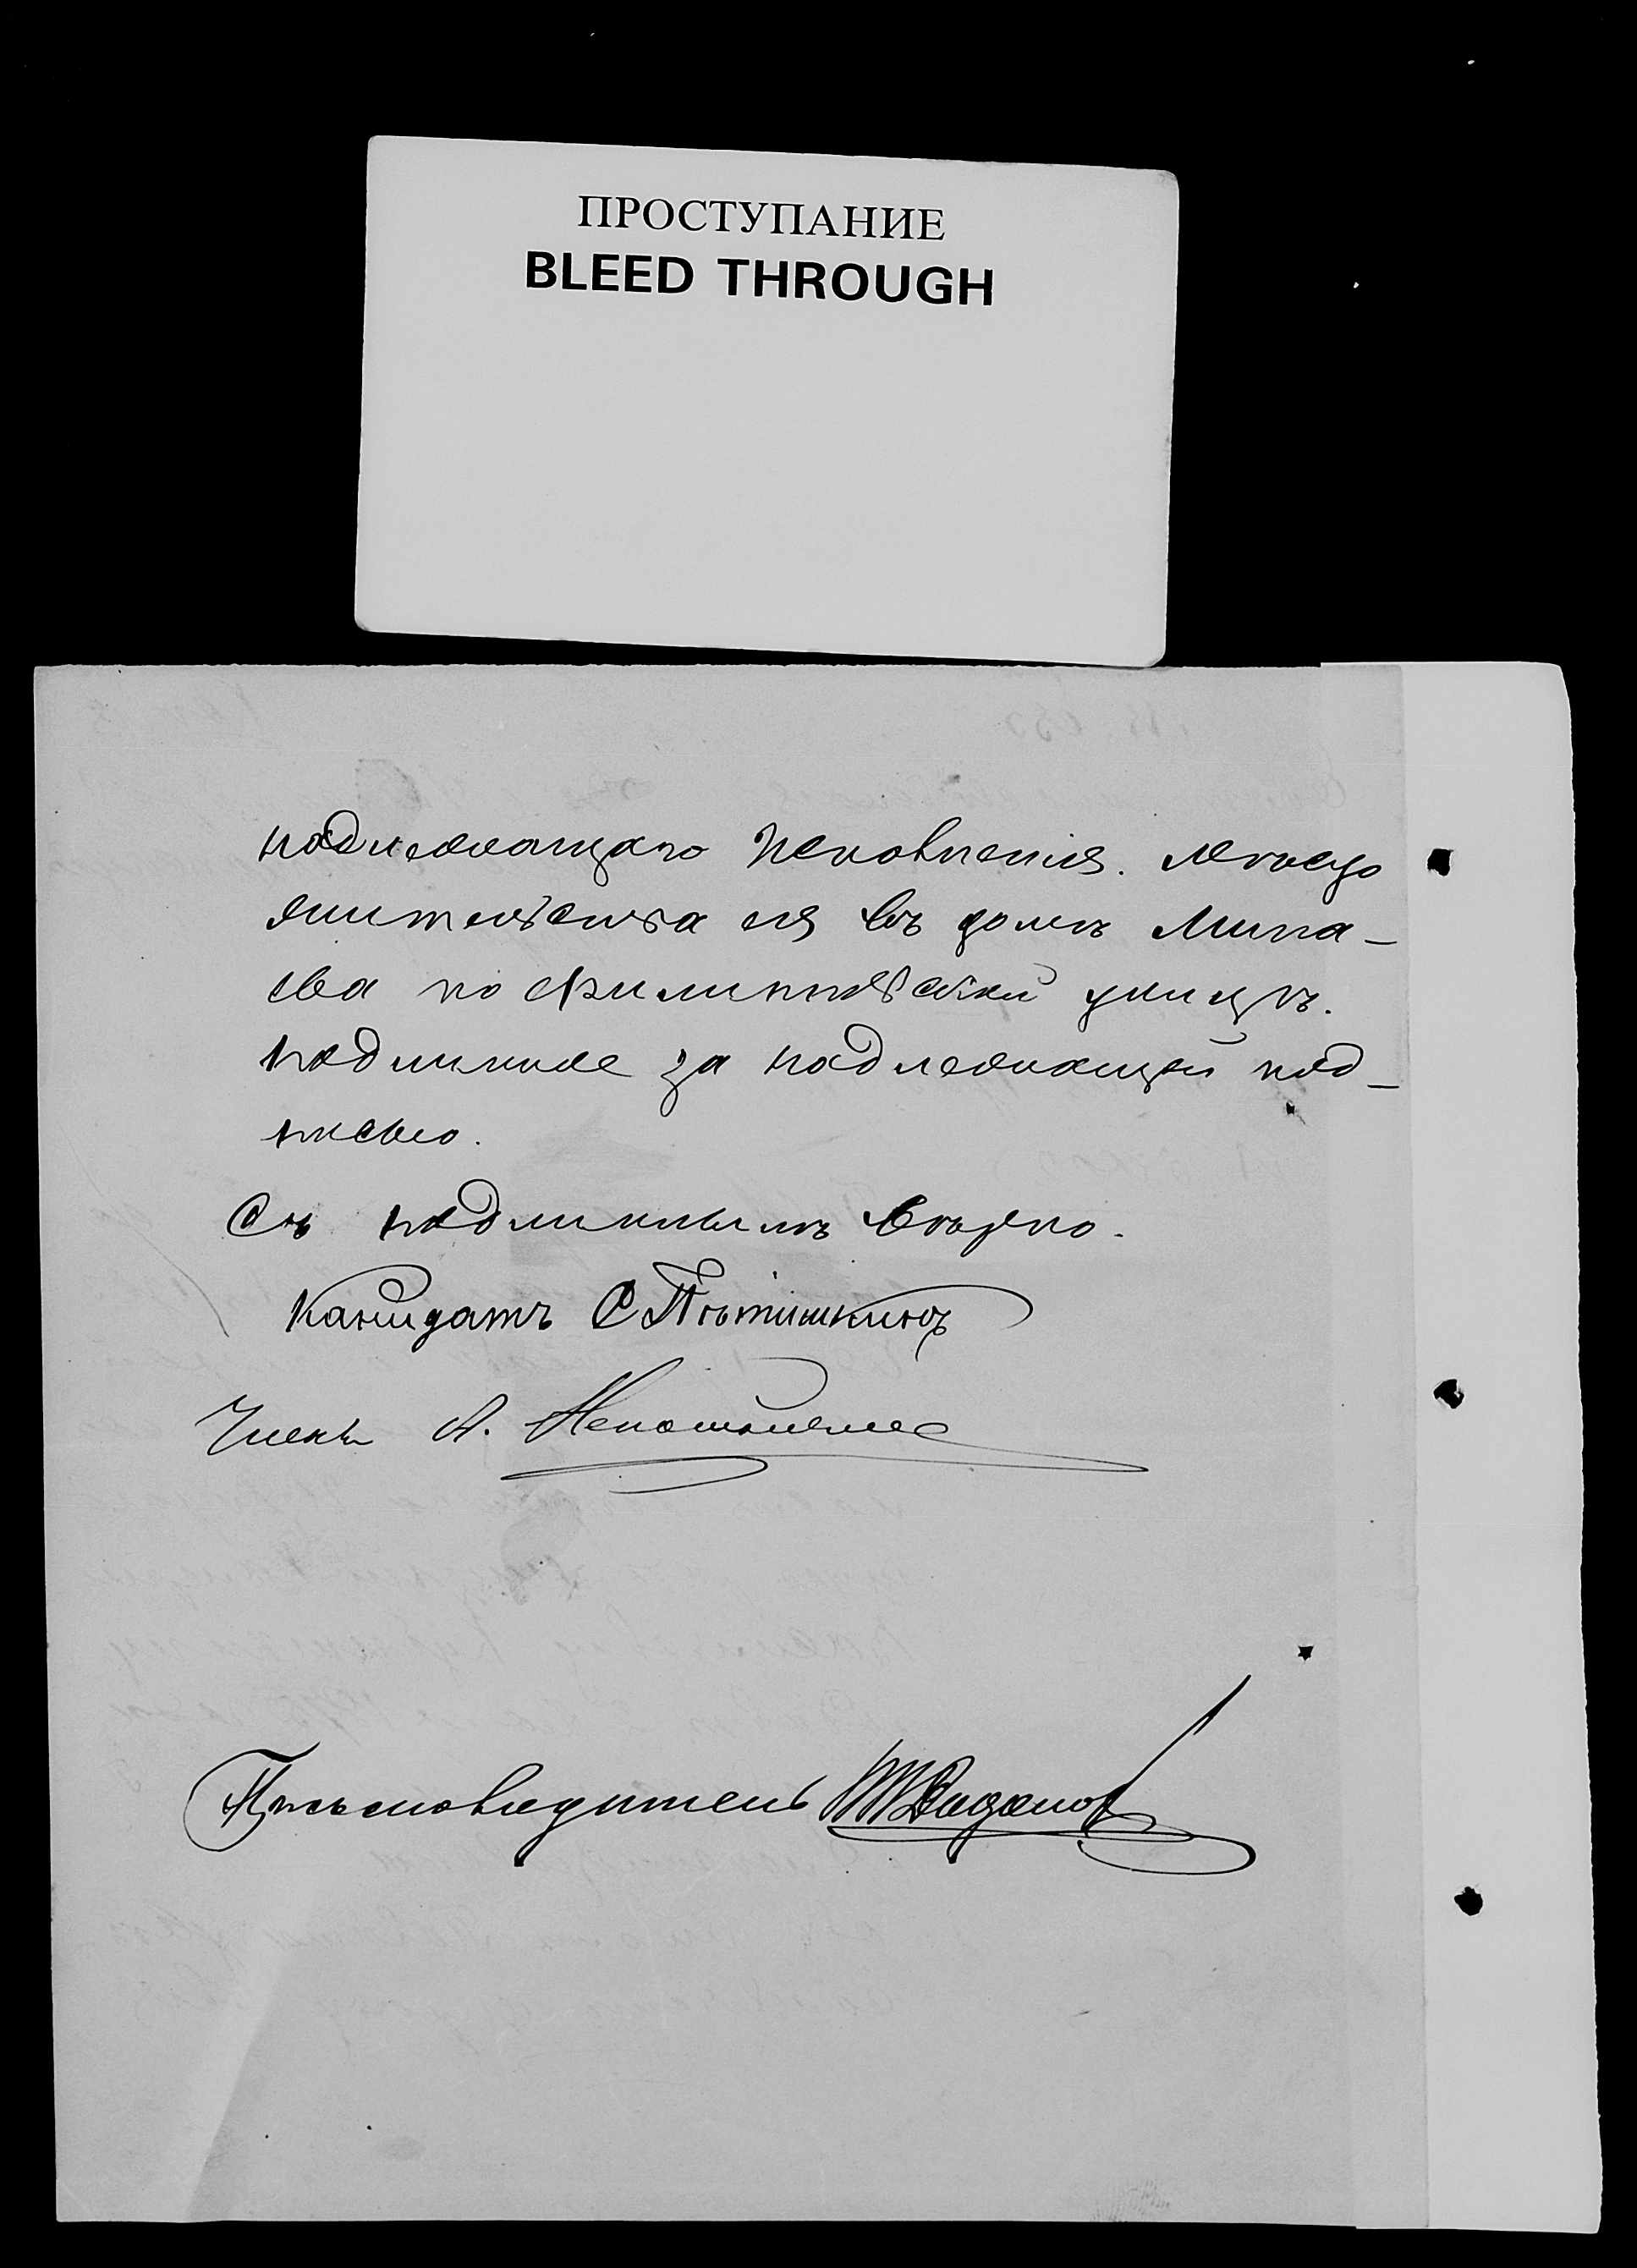 ПРОСТУПАНИЕ
BLEED THROUGH
надлежащаго исполненія. Мѣсто
жительства ея въ домѣ Мина-
ева по Филипповской улицѣ.
Подлинное за надлежащей под-
писью.
Съ подлиннымъ вѣрно.
Кандидатъ С Пѣтишкинъ
Членъ А.
Письмоводитель